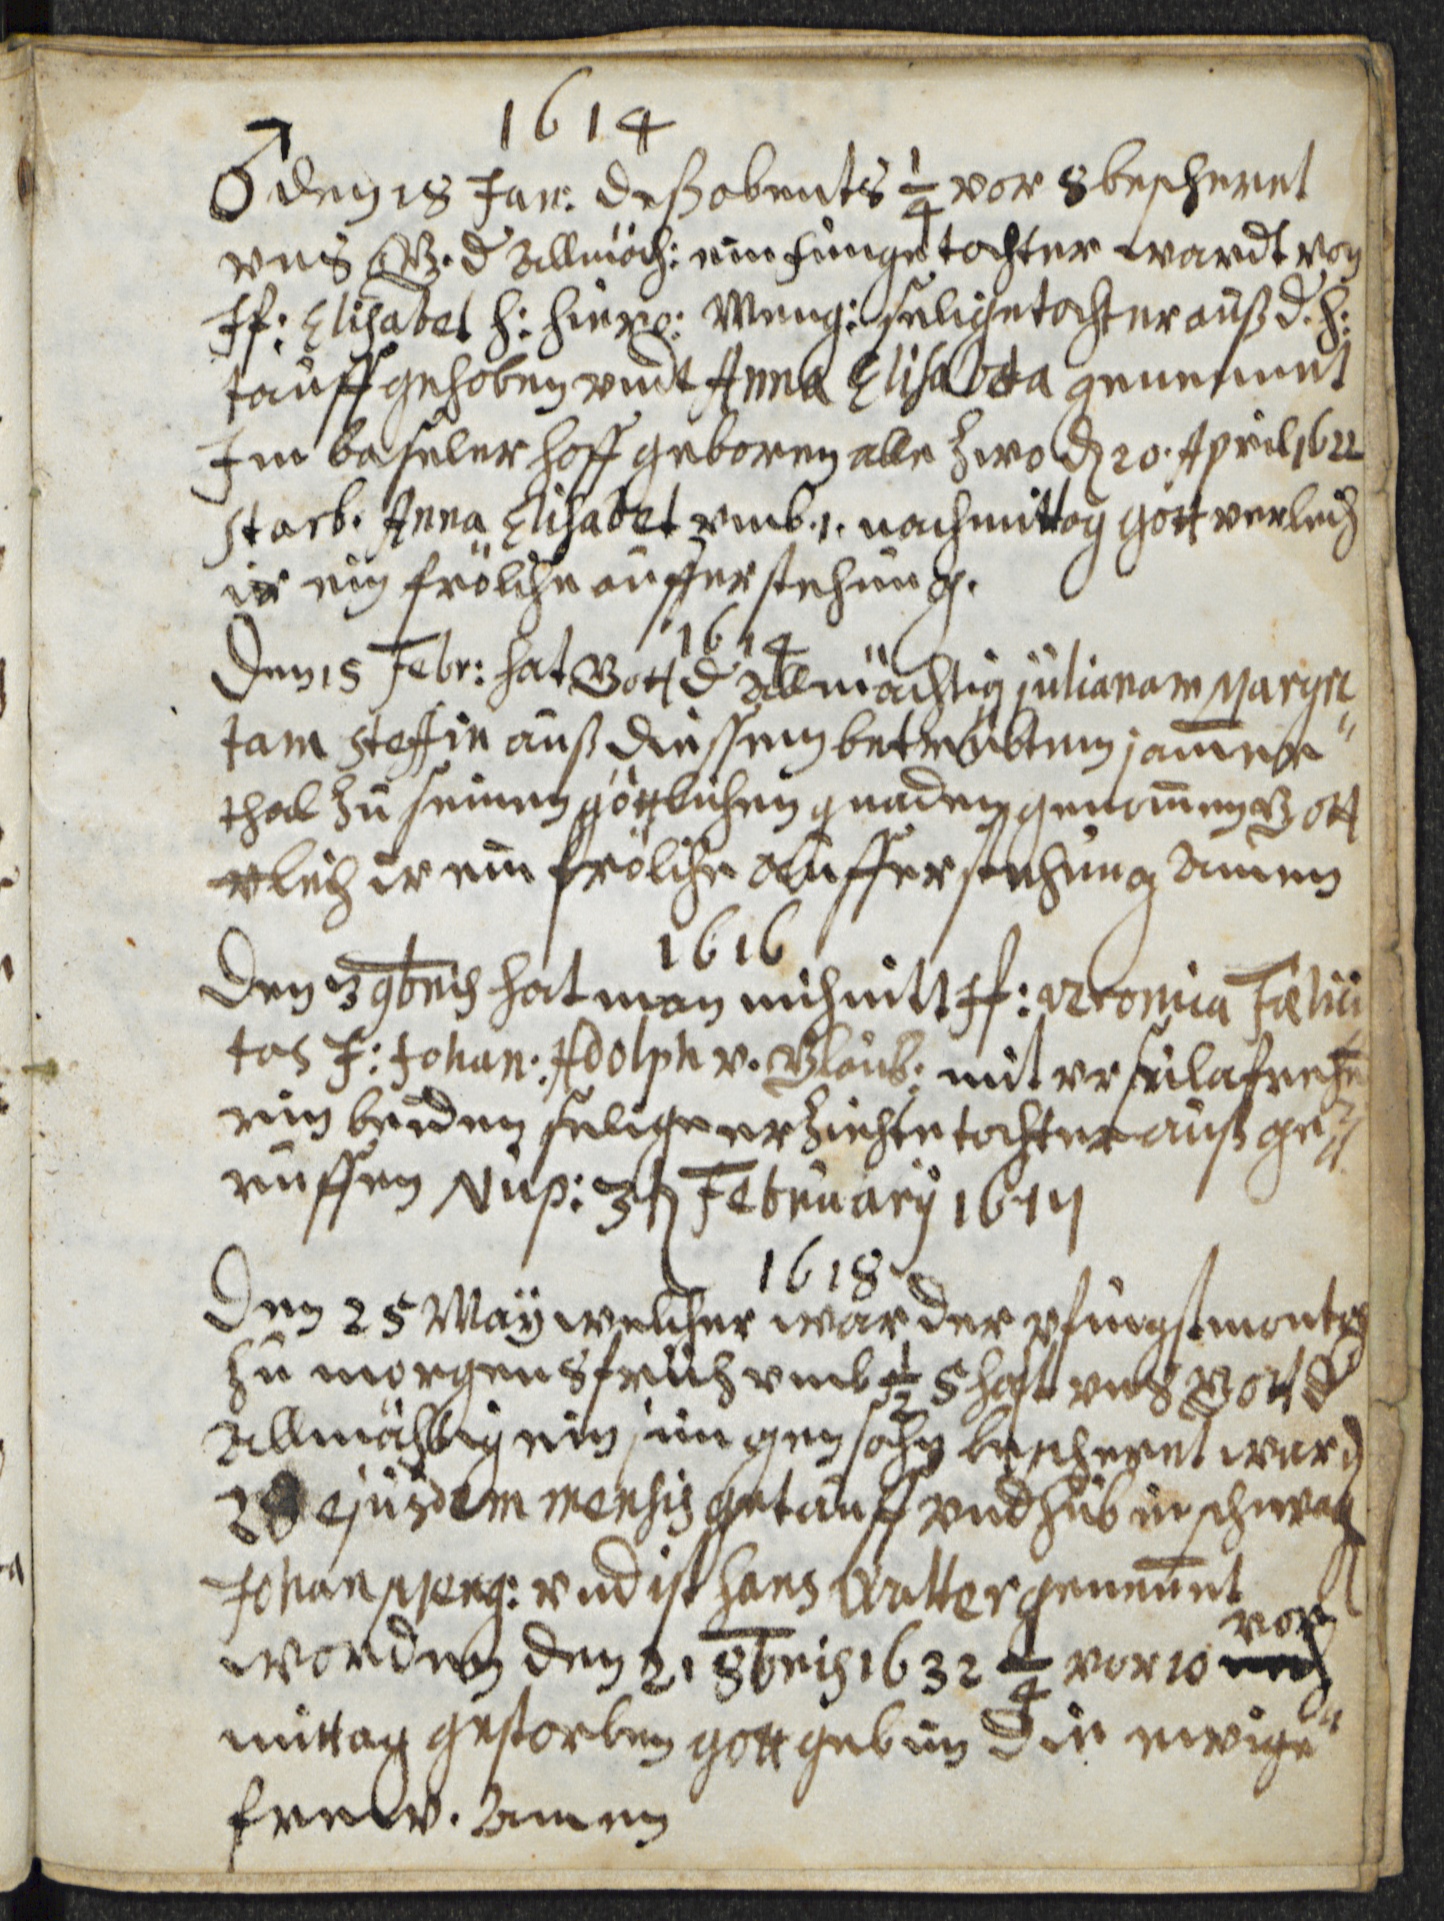 1614
♂ den 18 Jan: deß obents 1/4 vor 8 bescheret
vns G. d Allmäch: ein junge tochter wardt von
Jf: Elisabet H: Hiero: Meng: selige tochter auß d. H:
tauff gehoben vndt Anna Elisabeta genennet
Im baseler hoff geboren alle zwo d 20. April 1622
starb. Anna Elisabet vmb .1. nachmittag gott verleich
ir ein fröliche aufferstehung.
1614
Den 15 Febr: hat Gott d Allmächtig julianam Margre
tam steffin auß diessem betrübtem jammer
thal zu seinen göttlichen gnaden genommen Gott
vleich ir ein fröliche Aufferstehung Amen
1616
Den 3 9breis hat man mich mitt Jf: veronica Fælici
tas J: Johan: Adolph v. Glaub: mit vrsula
ein beiden selige erziehte tochter auß ge
ruffen Nup: 3 february 1617
1618
Den 25 May welcher war der pfingstmontag
zu morgens früh vmb 1/2 5 hatt vns Gott d
Allmächtig ein jungen sohn bescheret ward
28 ejusdem mensis getauff vnd hub in schwag
Johan Meng: vnd ist hans Walter genennet
worden den 21 8breis 1632 1/4 vor 10 vor
mittag gestorben gott geb im die ewige
frewd. Amen